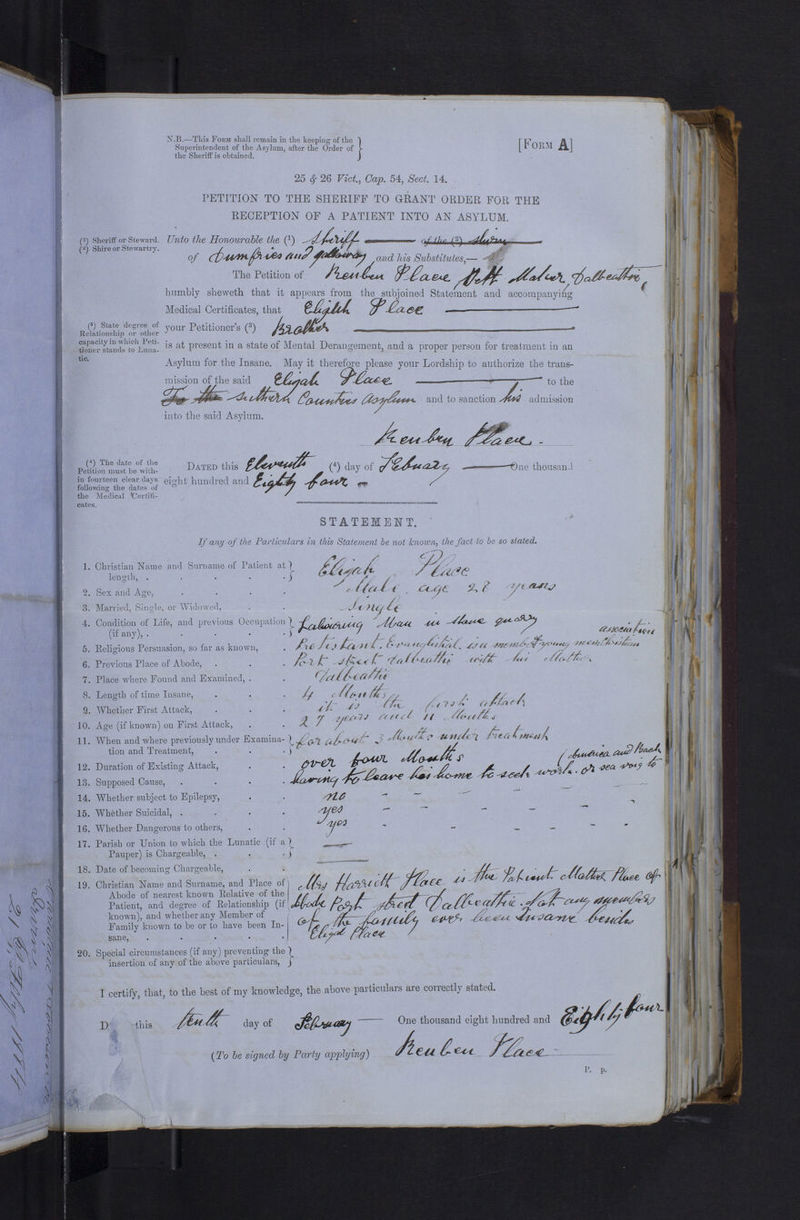 N.B.—This Form shall remain in the keeping of the
Superintendent of the Asylum, after the Order of
the Sheriff is obtained.
[Form A]
25 & 26 Vict., Cap. 54, Sect. 14.
PETITION TO THE SHERIFF TO GRANT ORDER FOR THE
RECEPTION OF A PATIENT INTO AN ASYLUM.
(1) Sheriff or Steward.
(2) Shire or Stewartry.
Unto the Honourable the (1) Sheriff of the (2)
of Dumfries and galloway and his Substitutes,—
The Petition of Reuben Place Sett Maker, Dalbeattie,
humbly sheweth that it appears from the subjoined Statement and accompanying
Medical Certificates, that Elijah Place
(3) State degree of
Relationship or other
capacity in which Peti-
tioner stands to Luna-
tic.
your Petitioner's (3) Brother
is at present in a state of Mental Derangement, and a proper person for treatment in an
Asylum for the Insane. May it therefore please your Lordship to authorize the trans-
mission of the said Elijah Place to the
To the Suthern Counties Asylum and to sanction his admission
into the said Asylum.
Reuben Place.
(4) The date of the
Petition must be with-
in fourteen clear days
following the dates of
the Medical Certifi-
cates.
Dated this Eleventh (4) day of Febuary One thousand
eight hundred and Eighty four
STATEMENT.
If any of the Particulars in this Statement be not known, the fact to be so stated.
1. Christian Name and Surname of Patient at
length, . Elijah Place
2. Sex and Age, Male age 28 years
3. Married, Single, or Widowed, Single
4. Condition of Life, and previous Occupation
(if any), . Labouring Man in stone quary
5. Religious Persuasion, so far as known, Protistant. Evanglistial. is a member of young mens Christian association
6. Previous Place of Abode, Port street Dalbeattie with his Mother
7. Place where Found and Examined, Dalbeattie
8. Length of time Insane, 4 Months
9. Whether First Attack, it is the first attack
10. Age (if known) on First Attack, 27 years and 11 Months
11. When and where previously under Examina-
tion and Treatment, for about 3 Months under treatment
12. Duration of Existing Attack, over four Months
13. Supposed Cause, having to leave his home to seek work. or sea voig to (America and Back
14. Whether subject to Epilepsy, no
15. Whether Suicidal, yes
16. Whether Dangerous to others, yes
17. Parish or Union to which the Lunatic (if a
Pauper) is Chargeable, —
18. Date of becoming Chargeable, —
19. Christian Name and Surname, and Place of
Abode of nearest known Relative of the
Patient, and degree of Relationship (if
known), and whether any Member of
Family known to be or to have been In-
sane,
Mrs Harrieth Place is the Patient Mother Place of
Abode Port street Dalbeattie. Not any members
of the family ever been Insane besides
Elijah Place
20. Special circumstances (if any) preventing the
insertion of any of the above particulars,
I certify, that, to the best of my knowledge, the above particulars are correctly stated.
D this tenth day of February One thousand eight hundred and Eighty four
(To be signed by Party applying) Reuben Place
P. p.